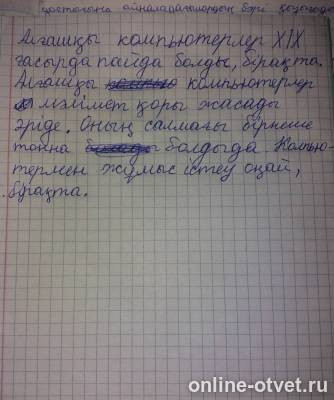 Алғашқы компьютерлер XIX
ғасырда пайда болды, бірақта.
Алғашқы компьютерлер
мәлімет қоры жасады
әріде. Оның салмағы бірнеше
тонна болдыда. Компью-
термен жұмыс істеу оңай,
бірақта.
online-otvet.ru